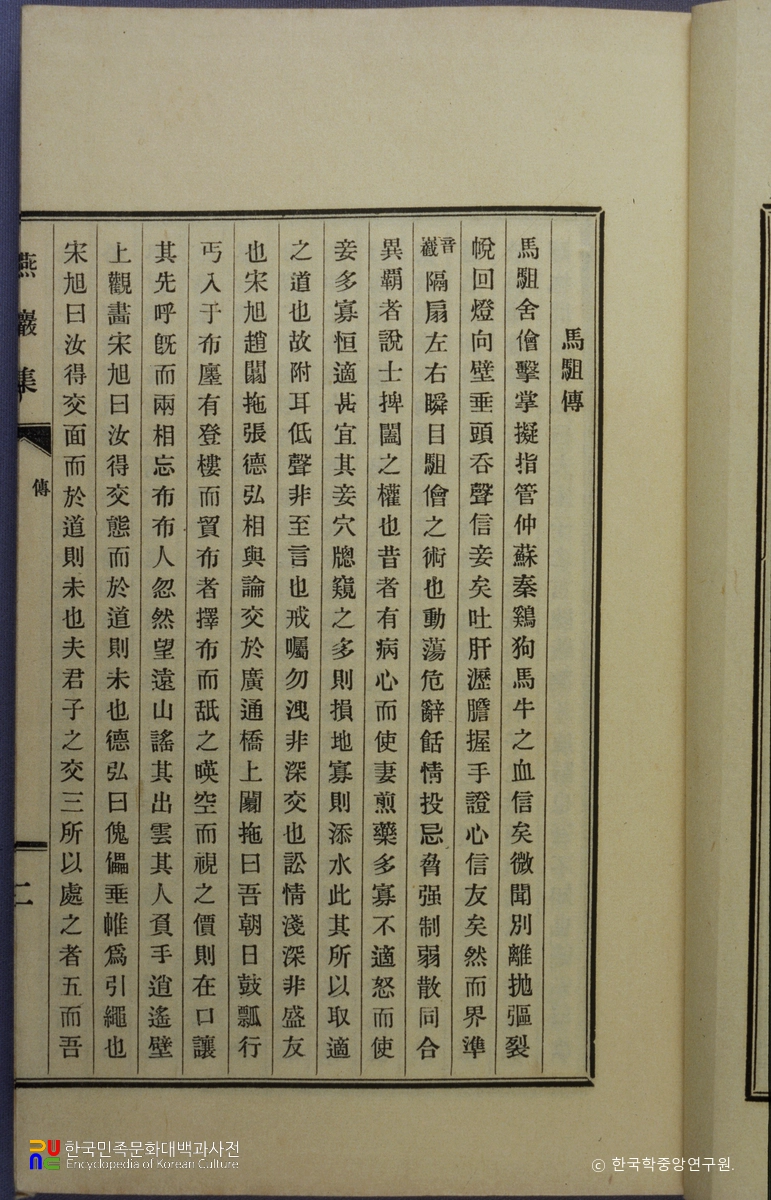 馬駔傳
馬駔舍儈擊掌擬指管仲蘇秦鷄狗馬牛之血信矣微聞別離抛彄裂
帨回燈向壁垂頭呑聲信妾矣吐肝瀝膽握手證心信友矣然而界準
音截隔扇左右瞬目駔儈之術也動蕩危辭餂情投忌脅强制弱散同合
異覇者說士捭闔之權也昔者有病心而使妻煎藥多寡不適怒而使
妾多寡恒適甚宜其妾穴牕窺之多則損地寡則添水此其所以取適
之道也故附耳低聲非至言也戒囑勿洩非深交也訟情淺深非盛友
也宋旭趙闒拖張德弘相與論交於廣通橋上闒拖曰吾朝日鼓瓢行
丐入于布廛有登樓而貿布者擇布而舐之暎空而視之價則在口讓
其先呼旣而兩相忘布布人忽然望遠山謠其出雲其人負手逍遙壁
上觀畵宋旭曰汝得交態而於道則未也德弘曰傀儡垂帷爲引繩也
宋旭曰汝得交面而於道則未也夫君子之交三所以處之者五而吾
燕巖集
傳
二
한국민족문화대백과사전
Encyclopedia of Korean Culture
© 한국학중앙연구원.